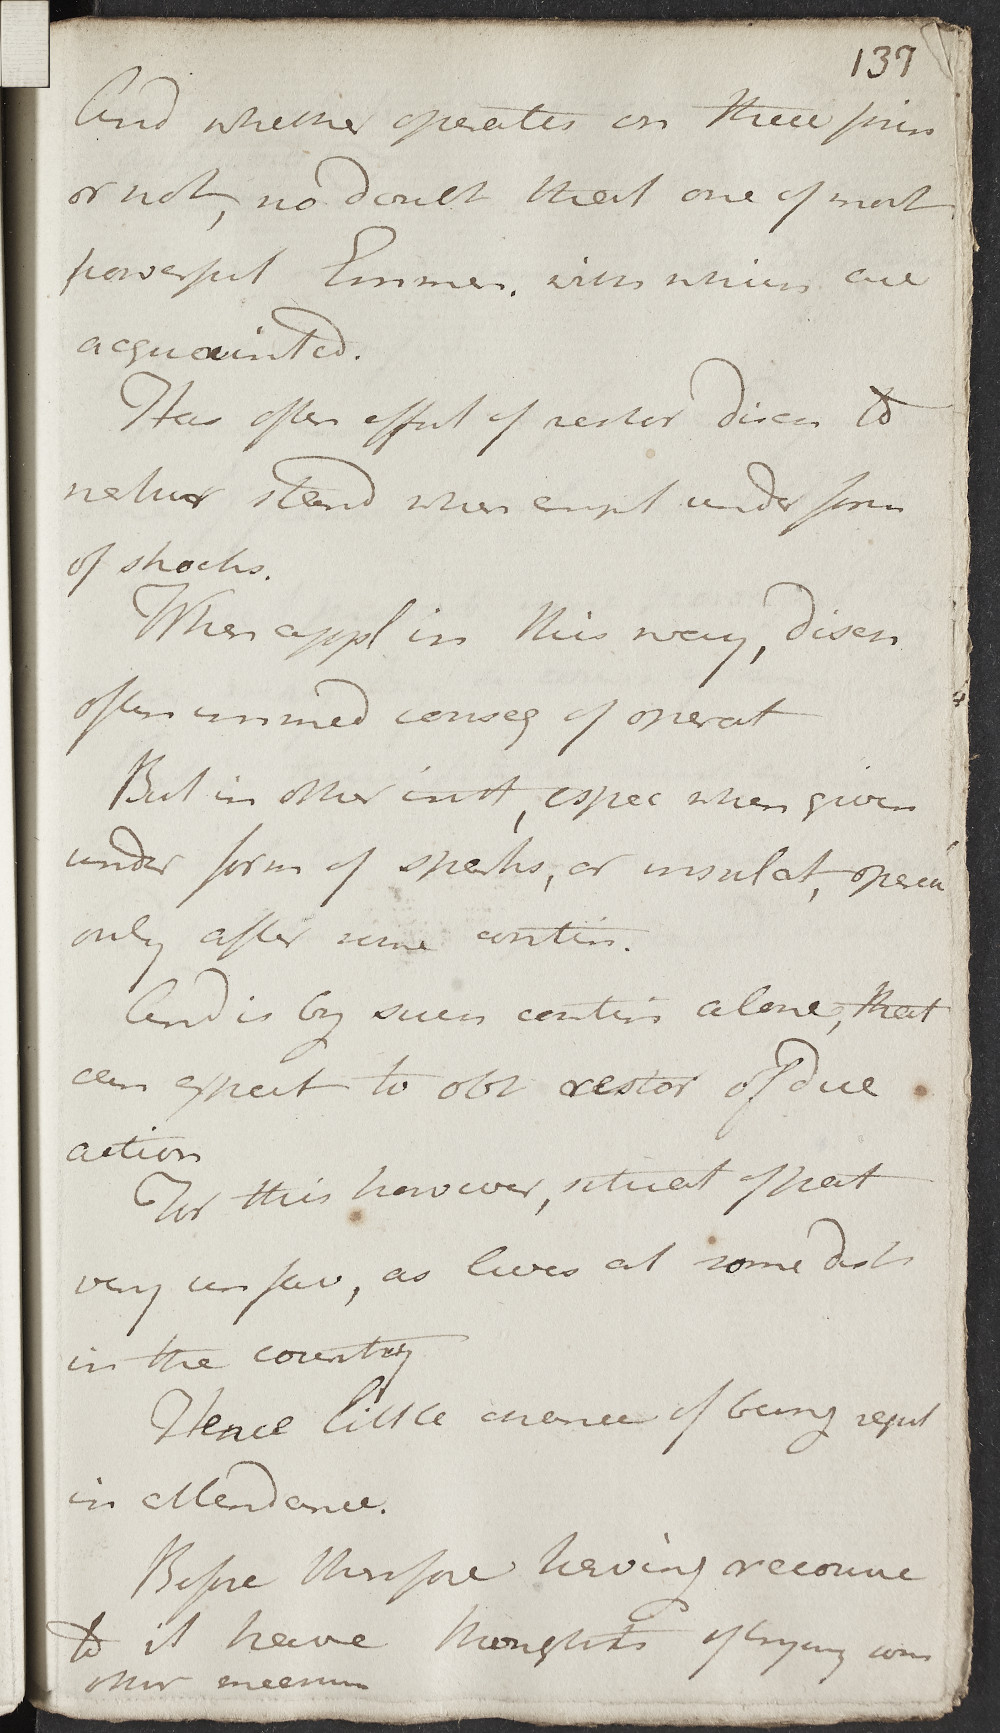 137
And whether operates on these prin
or not, no doubt that one of most
powerful Emmen. with which are
acquainted.
Has often effect of restor disch to
natur stand when empl under form
of shocks.
When appl in this way, disch
often immed conseq of operat
But in other inst, espec when given
under form of sparks, or insulat, opera
only after some contin.
And is by such contin alone, that
can expect to obt restor of due
action
For this however, situat of pat
very unfav, as lives at some dist
in the country
Hence little chance of being regul
in attendance.
Before therefore having recourse
to it have thoughts of trying som
other emmen